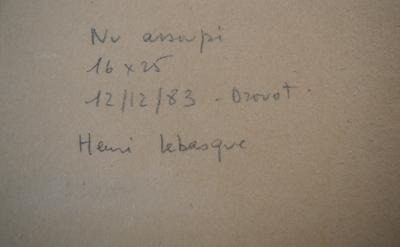 Nu assoupi
16 x 25
12/12/83 - Drouot.
Henri Lebasque